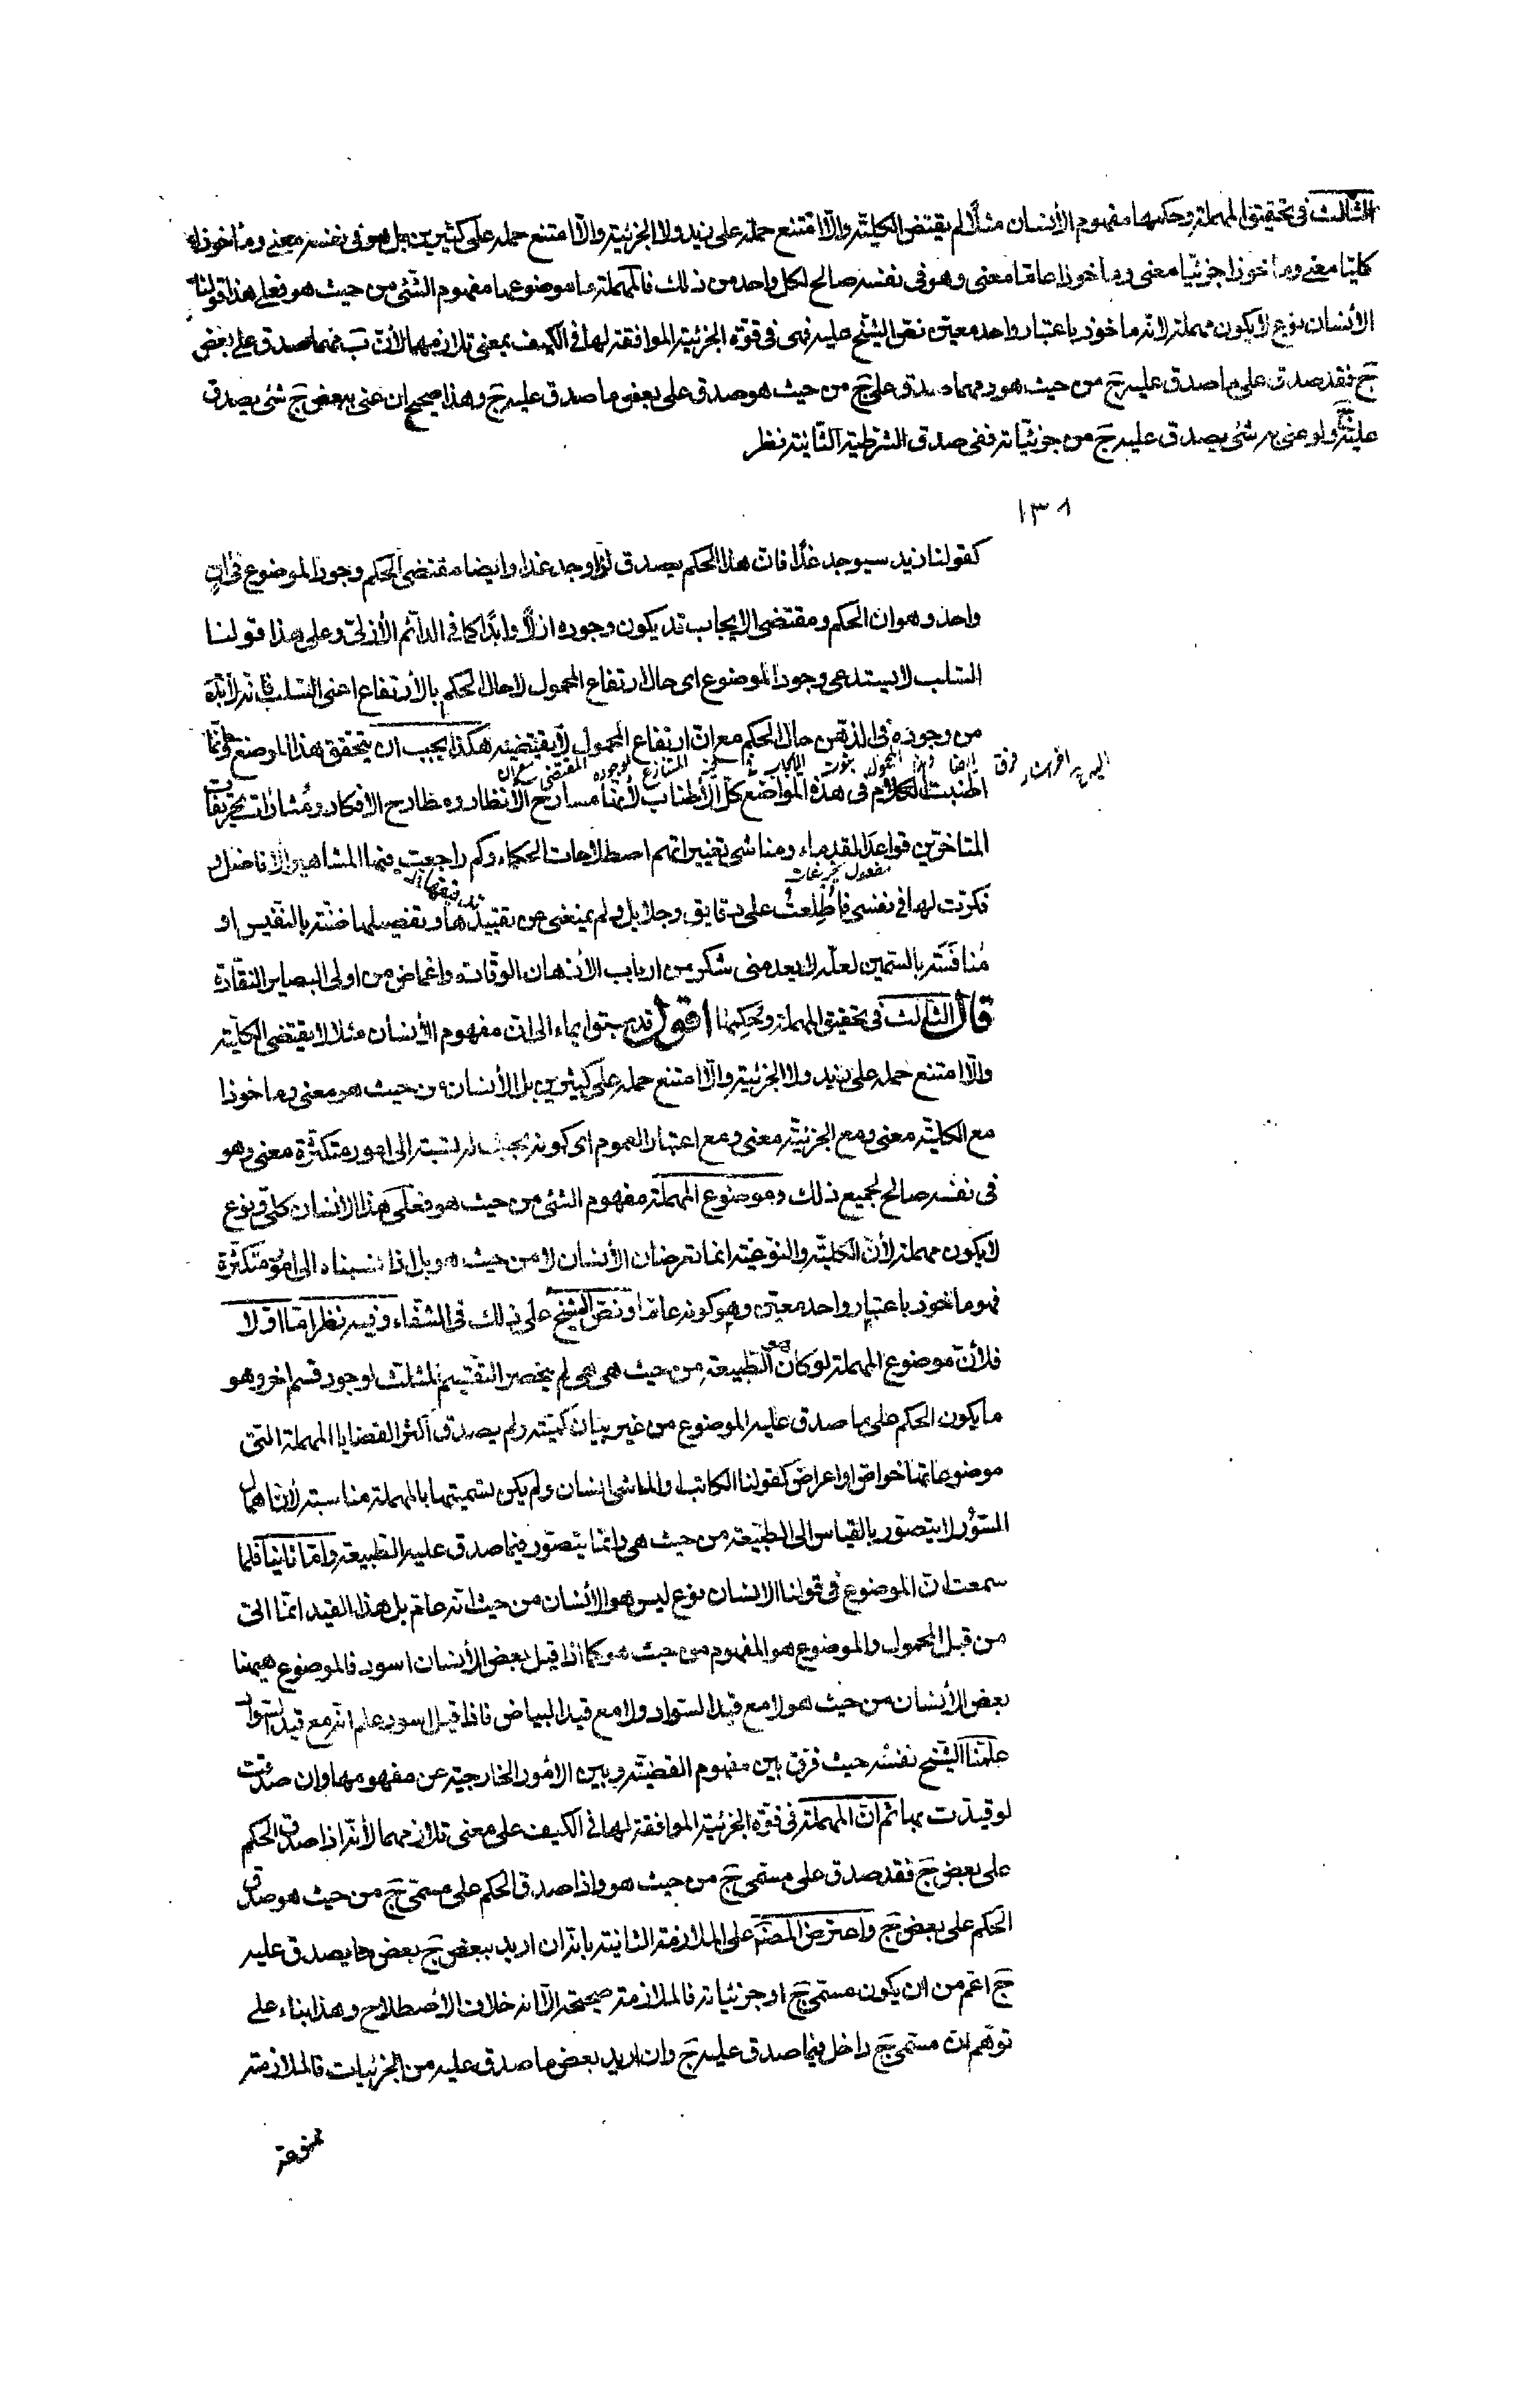 الثالث في تحقيق المهملة وحكمها مفهوم الأنسان مثلًا لم يقتض الكلية والّا امتنع حمله على زيد ولا الجزئية والّا امتنع حمله على كثيرين بل هو في نفسه معنى ومأخوذا
كليّا معنى ومأخوذا جزئيّا معنى ومأخوذا عامّا معنى وهو في نفسه صالح لكل واحد من ذلك فالمهملة ما موضوعها مفهوم الشئ من حيث هو فعلى هذا قولنا
الأنسان نوع لا يكون مهملة لانه مأخوذ باعتبار واحد معين نصّ الشيخ عليه فهى في قوّة الجزئية الموافقة لها في الكيف بمعنى تلازمهما لأنّ ب مهما صدق على بعض
جَ فقد صدق على ما صدق عليه جَ من حيث هو ومهما صدق على جَ من حيث هو صدق على بعض ما صدق عليه جَ وهذا صحيح ان عنى ببعض جَ شئ يصدق
عليه جَ ولو عنى به شئ يصدق عليه جَ من جزئيّاته ففى صدق الشرطية الثانية نظر
١٣٨
كقولنا زيد سيوجد غدًا فانّ هذا الحكم يصدق لو وجد غدا وايضا مقتضى الحكم وجود الموضوع في انٍ
واحد وهو ان الحكم ومقتضى الايجاب قد يكون وجوده ازلًا وابدًا كما في الدائم الأزلىّ وعلى هذا قولنا
السّلب لا يستدعى وجود الموضوع اى حال ارتفاع المحمول لا حال الحكم بالأرتفاع اعنى السّلب فانّه لا بدّ
من وجوده في الذهن حال الحكم مع انّ ارتفاع المحمول لا يقتضيه هكذا يجب ان يتحقق هذا الموضع وانّما
اطنبت الكلام في هذه المواضع كلّ الأطناب لأنّها مسارح الأنظار ومطارح الأفكار ومثارات تحريفات
المتأخرين قواعد القدماء ومناشى تغييراتهم اصطلاحات الحكماء وكم راجعت فيها المشاهير والافاضل و
مفعول تحريفات
فكرّت لها في نفسى فأُطلعتُ على دقايق وجلايل ولم يمنعنى عن تقييدها وتفصيلها ضنّة بالنفيس او
مُنافسَة بالسّمين لعلّه لا يعدمنى شكر من ارباب الأذهان الوقّادة واغماض من اولى البصاير النقّادة
قال الثالث في تحقيق المهملة وحُكمها اقول قد سبق ايماء الى انّ مفهوم الأنسان مثلا لا يقتضى الكلية
والّا امتنع حمله على زيد ولا الجزئية والّا امتنع حمله على كثيرين بل الأنسان من حيث هو معنى ومأخوذا
مع الكلية معنى ومع الجزئية معنى ومع اعتبار العموم اى كونه بحيث له نسبة الى امور متكثرة معنى وهو
في نفسه صالح لجميع ذلك وموضوع المهملة مفهوم الشئ من حيث هو فعلى هذا الأنسان كلى ونوع
لا يكون مهملة لأنّ الكليّة والنّوعيّة انما تعرضان الأنسان لا من حيث هو بل اذا نسبناه الى امور متكثرة
فهو مأخوذ باعتبار واحد معين وهو كونه عامّا ونصّ الشيخ على ذلك في الشفاء وفيه نظر امّا اوّلا
فلأنّ موضوع المهملة لو كان الطّبيعة من حيث هى هى لم ينحصر التقسيم المثلث لوجود قسم اخر وهو
ما يكون الحكم على ما صدق عليه الموضوع من غير بيان كميّته ولم يصدق اكثر القضايا المهملة التى
موضوعاتها خواصّ او اعراض كقولنا الكاتب والماشى انسان ولم يكن تسميتها بالمهملة مناسبة لأنّ اهمال
السّور لا يتصوّر بالقياس الى الطبيعة من حيث هى وانما يتصوّر فيما صدق عليه الطبيعة وامّا ثانيا فلما
سمعت انّ الموضوع في قولنا الانسان نوع ليس هو الأنسان من حيث انه عامّ بل هذا القيد انما اتى
من قبل المحمول والموضوع هو المفهوم من حيث هو كما اذا قيل بعض الأنسان اسود فالموضوع ههنا
بعض الأنسان من حيث هو لا مع قيد السّواد ولا مع قيد البياض فاذا قيل اسود علم انّه مع قيد السّواد
علّمنا الشيخ نفسُه حيث فرّق بين مفهوم القضيّة وبين الأمور الخارجيّة عن مفهومها وان صدقت
لو قيدت بها ثم انّ المهملة في قوّة الجزئية الموافقة لها في الكيف على معنى تلازمهما لأنّه اذا صدق الحكم
على بعض جَ فقد صدق على مسمّى جَ من حيث هو واذا صدق الحكم على مسمّى جَ من حيث هو صدق
الحكم على بعض جَ واعترض المصنّف على الملازمة الثانية بانّه ان اريد ببعض جَ بعض ما يصدق عليه
جَ اعّم من ان يكون مسمّى جَ او جزئياته فالملازمة صحيحة الّا انه خلاف الأصطلاح وهذا بناء على
توهّم انّ مسمّى جَ داخل فيما صدق عليه جَ وان اريد بعض ما صدق عليه من الجزئيات فالملازمة
ممنوعة